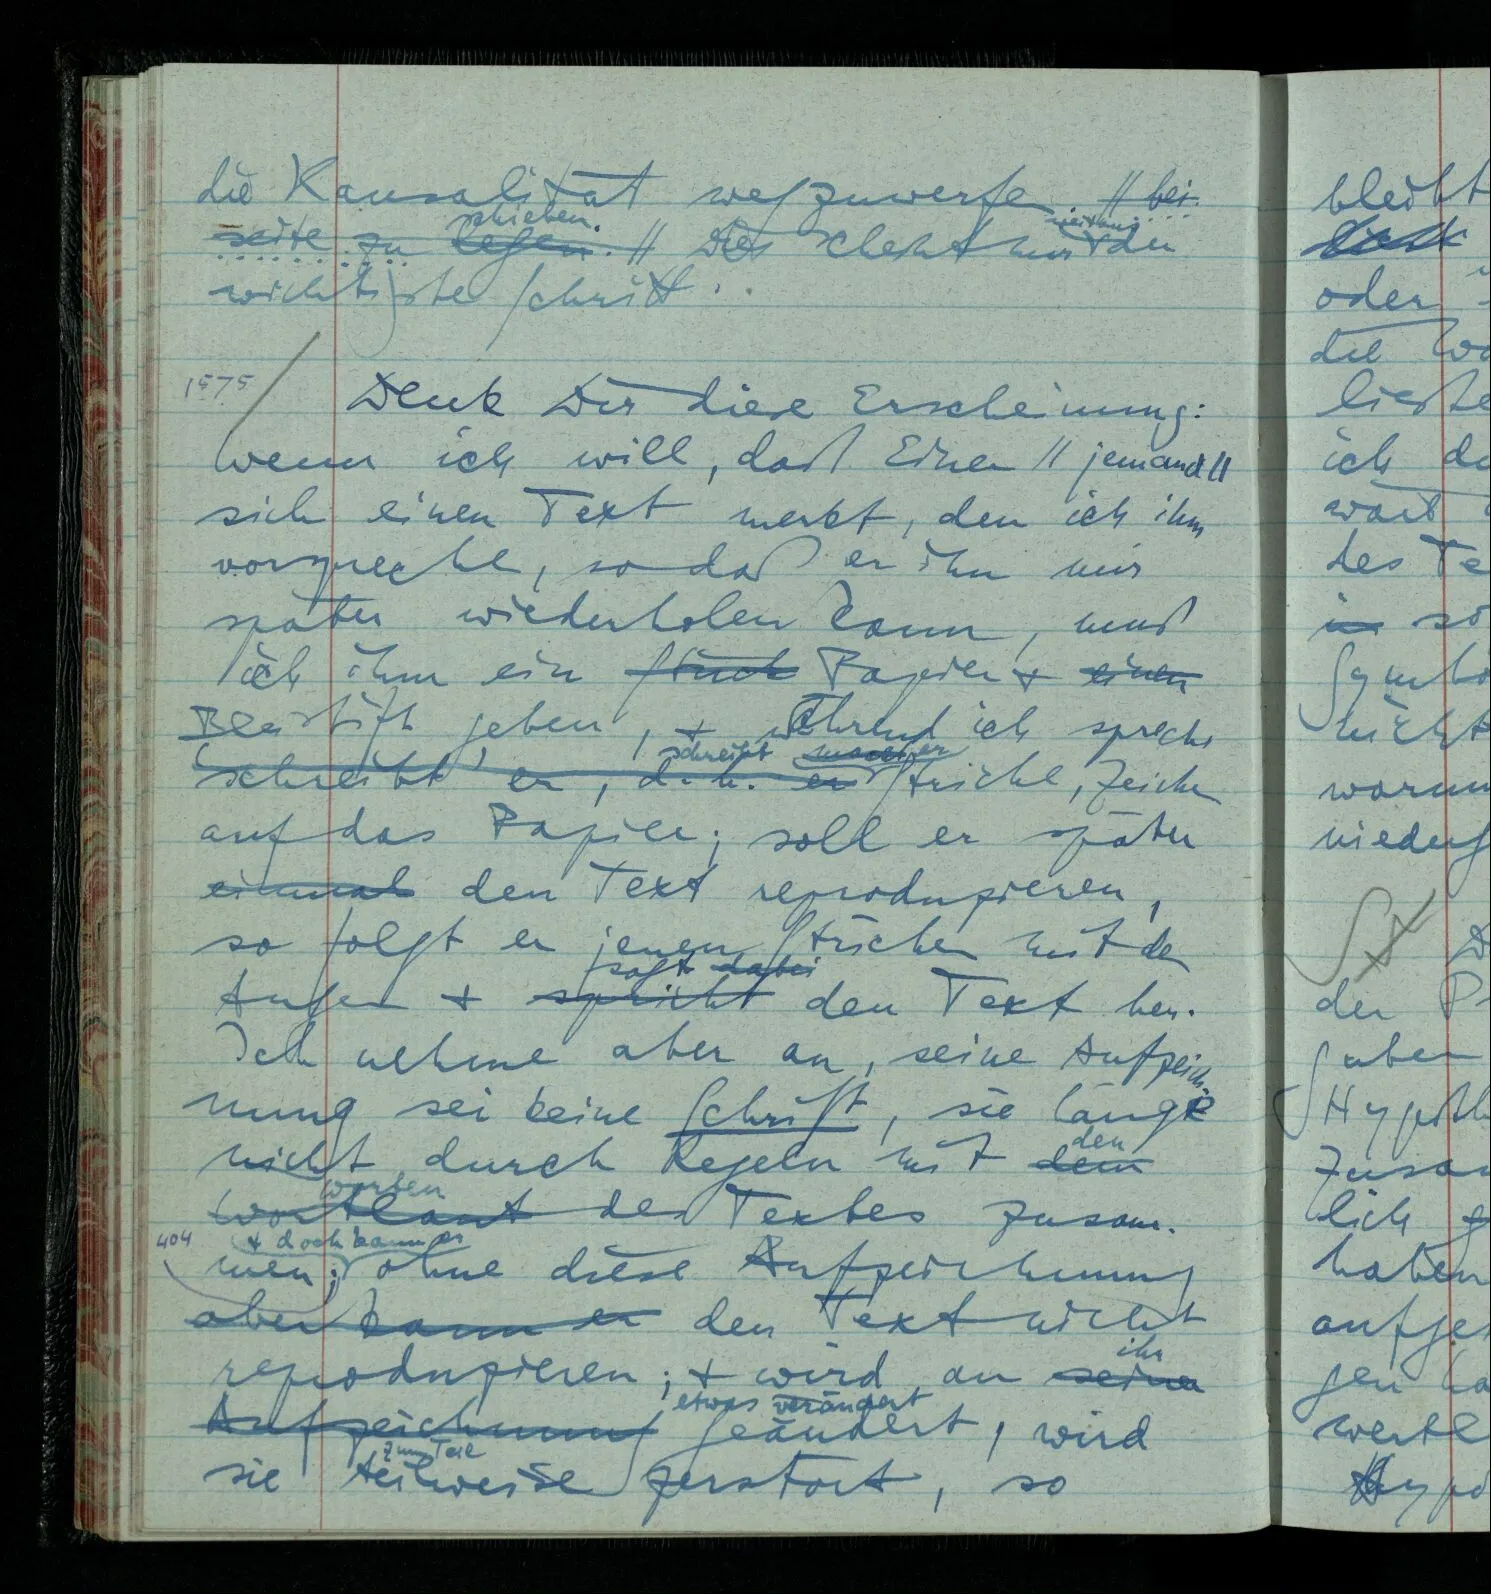 die Kausalität wegzuwerfen. // bei-
schieben.
seite zu legen. // Dies scheint mir der
wichtigste Schritt.
1575
Denk Dir diese Erscheinung:
wenn ich will, daß Einer // jemand //
sich einen Text merkt, den ich ihm
vorspreche, so daß er ihn mir
später wiederholen kann, muß
ich ihm ein Stück Papier & einen
Bleistift geben, & während ich spreche
schreibt macht er
schreibt er, d.h. er Striche, Zeichen
auf das Papier; soll er später
einmal den Text reproduzieren,
so folgt er jenen Strichen mit den
sagt dabei
Augen & spricht den Text her.
Ich nehme aber an, seine Aufzeich-
nung sei keine Schrift, sie hänge
den
nicht durch Regeln mit dem
Worten
Wortlaut des Textes zusam-
404
& doch kann er
men; ohne diese Aufzeichnung
aber kann er den Text nicht
ihr
reproduzieren; & wird an seiner
etwas verändert
Aufzeichnung geändert, wird
zum Teil
sie teilweise zerstört, so
bleibt
oder
die
ich
des Te
nicht
warum
der P
haben